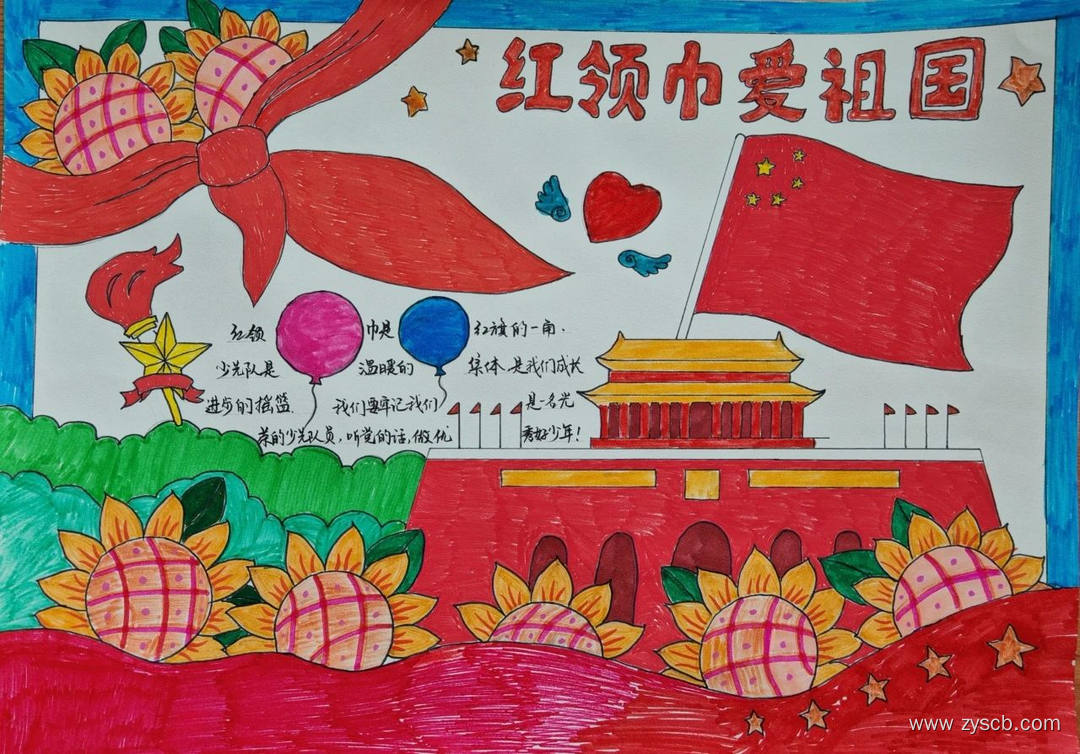 红领巾爱祖国
红领 巾是 红旗的一角.
少先队是 温暖的 集体 是我们成长
进步的摇篮. 我们要牢记我们 是一名光
荣的少先队员,听党的话,做优 秀好少年!
www.zyscb.com